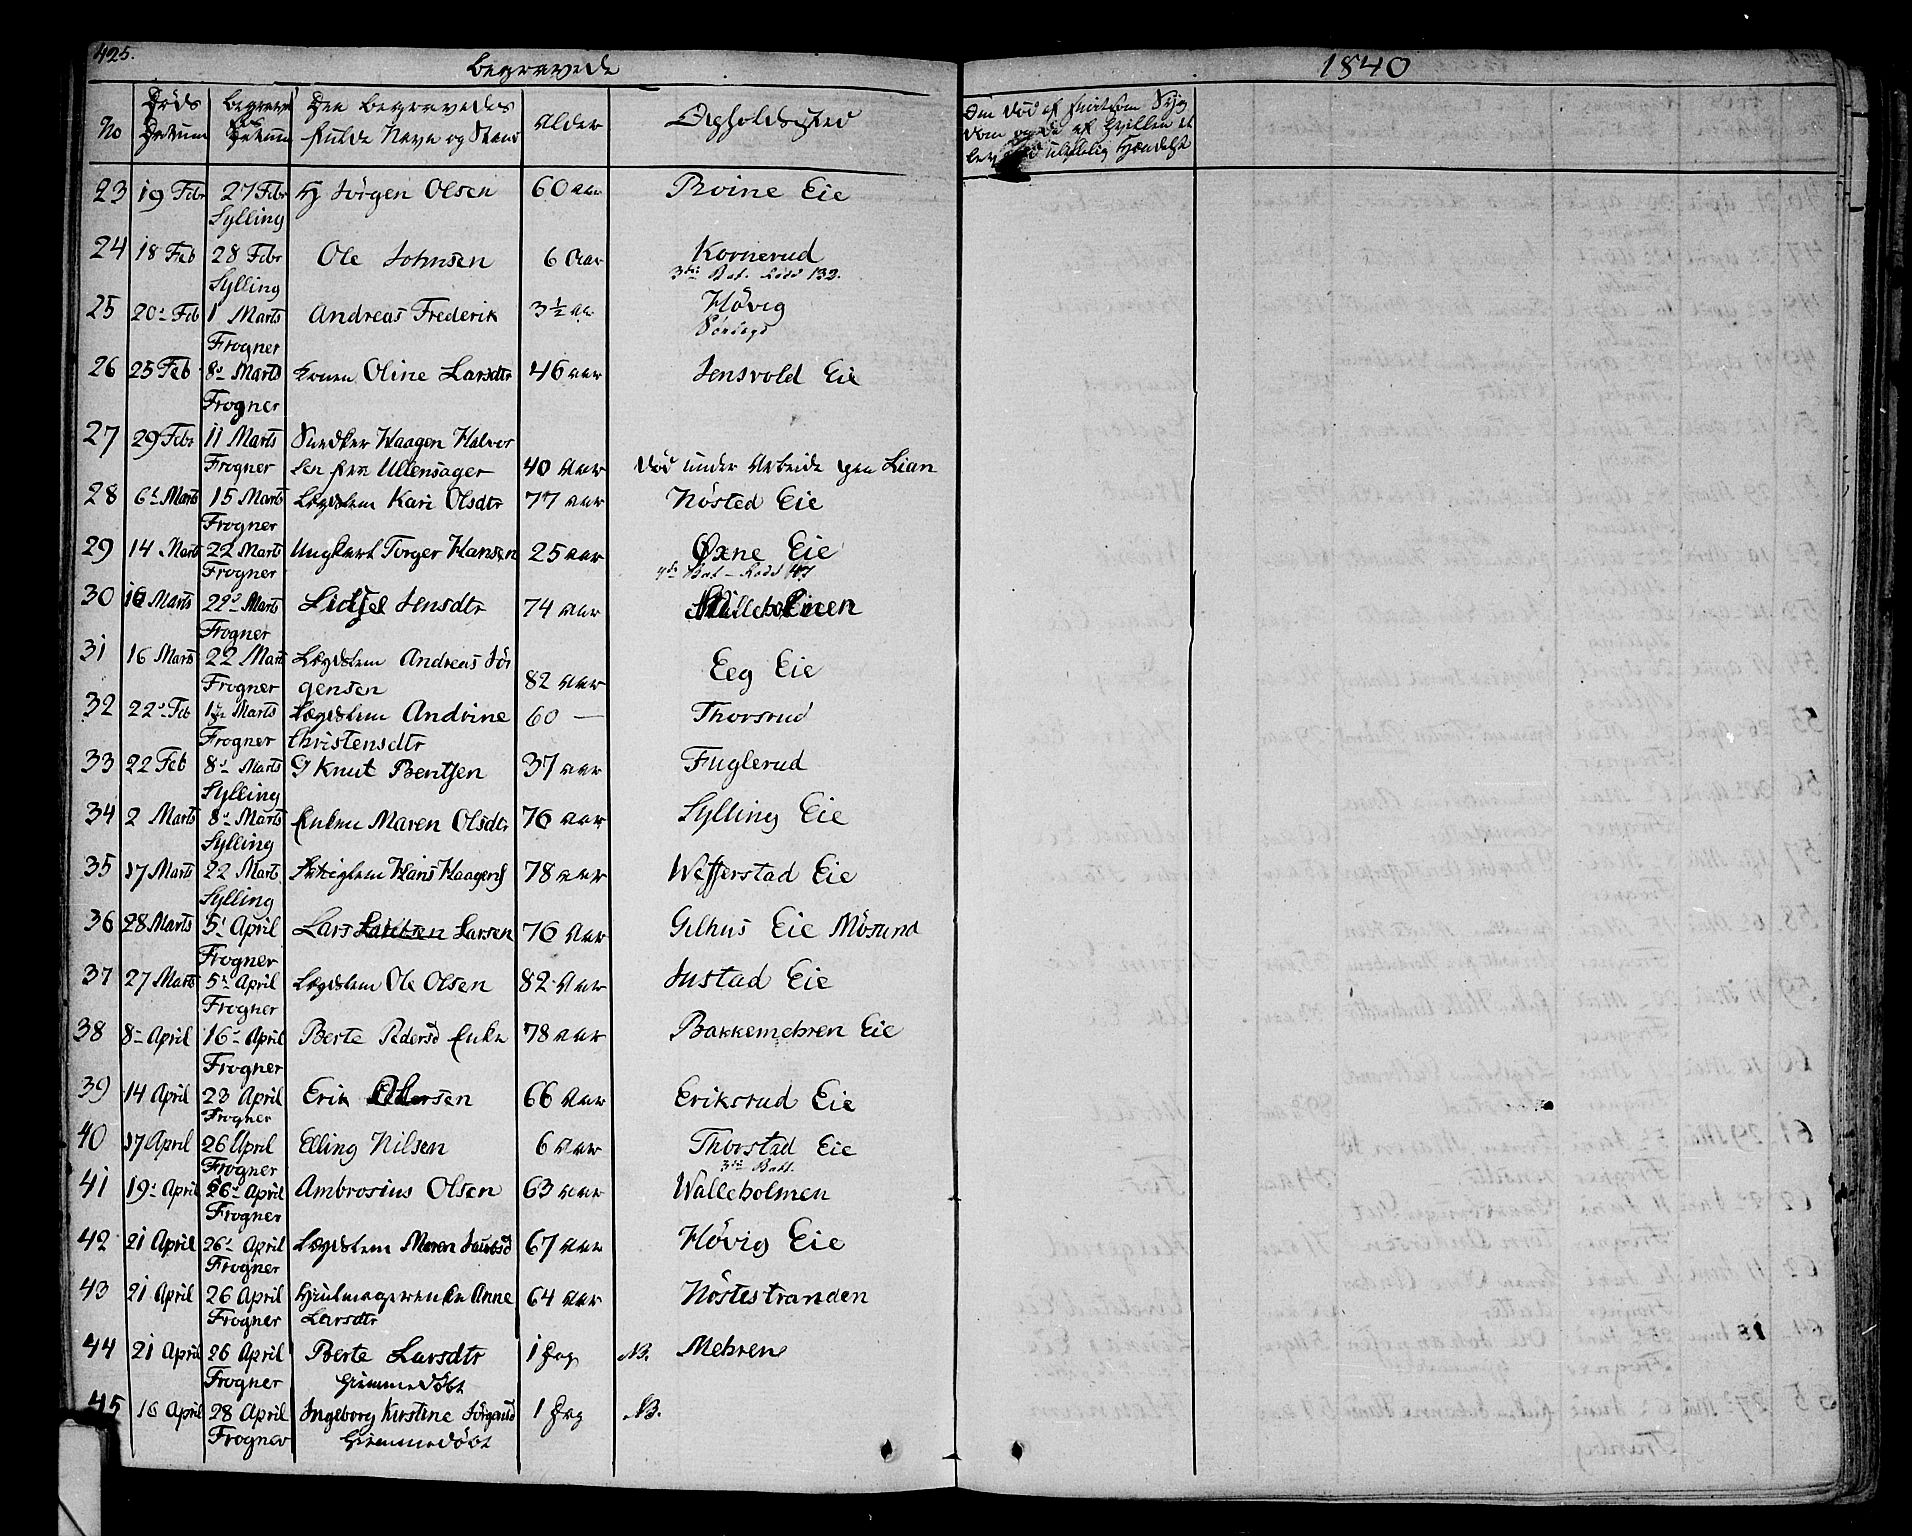 425.
Begravede
1840
No
Døds Datum
Begravel ses Datum
Den Begravedes fulde Navn og Stand
Alder
Opholdssted
Den død af smitsom Syg
dom og de af hvilken et
lev ved ulykkelig Hændelse
23 19 Febr 27 Febr Sylling Jørgen Olsen 60 aar Roine Eie
24 18 Feb 28 Febr Sylling Ole Johnsen 6 Aar Kornerud
3die Bat. Lodd 132.
25 20de Feb 1 Marts Frogner Andreas Frederik 3½ aa Høvig
26 25 Feb 8de Marts Frogner Konen Oline Larsdtr 46 aar Jensvold Eie
27 29 Febr 11 Marts Frogner Snedker Haagen Halvor
sen fra Ullensager 40 Aar død under Arbeide paa Lian
28 6te Marts 15 Marts Frogner Lægdslem Kari Olsdtr 77 aar Nøsted Eie
29 14 Marts 22 Marts Frogner Ungkarl Torger Hansen 25 aar Øxne Eie
4de Bat - Lodd 47
30 16 Marts 22de Marts Frogner Jensdtr 74 aar Walleholmen
31 16 Marts 22 Marts Frogner Lægdslem Andreas Jør
gensen 82 Aar Eeg Eie
32 22de Feb Marts Frogner Lægdslem Andrine
Christensdtr 60 — Thorsrud
33 22 Feb 8de Marts Sylling G Knut Bentsen 37 aar Fuglerud
34 2 Marts 8de Marts Sylling Enken Maren Olsdtr 76 aar Sylling Eie
35 17 Marts 22 Marts Sylling Fattiglem Hans Haagens 78 aar Wefferstad Eie
36 28 Marts 5te April Frogner Lars Larsen 76 Aar Gilhus Eie Møsund
37 27 Marts 5te April Frogner Lægdslem Ole Olsen 82 Aar Justad Eie
38 8de April 16de April Frogner Berte Pedersd Enke 78 aar Bakkemehren Eie
39 14 April 23 April Frogner Erik Pedersen 66 Aar Eriksrud Eie
40 17 April 26 April Frogner Elling Nilsen 6 Aar Thorstad Eie
3die Batt.
41 19de April 26de April Frogner Ambrosius Olsen 63 aar Walleholmen
42 21 April 26de April Frogner Lægdslem Maren Jacobsd 67 Aar Høvig Eie
43 21 April 26 April Frogner Hjulmagerenke Anne
Larsdtr 64 Aar Nøstestranden
44 21 April 26 April Frogner Berte Larsdtr
Hjemmedøbt 1 Dag NB. Mehren
45 16 April 28 April Frogner Ingeborg Kirstine Jørgensd
Hjemmedøbt 1 Dag NB.